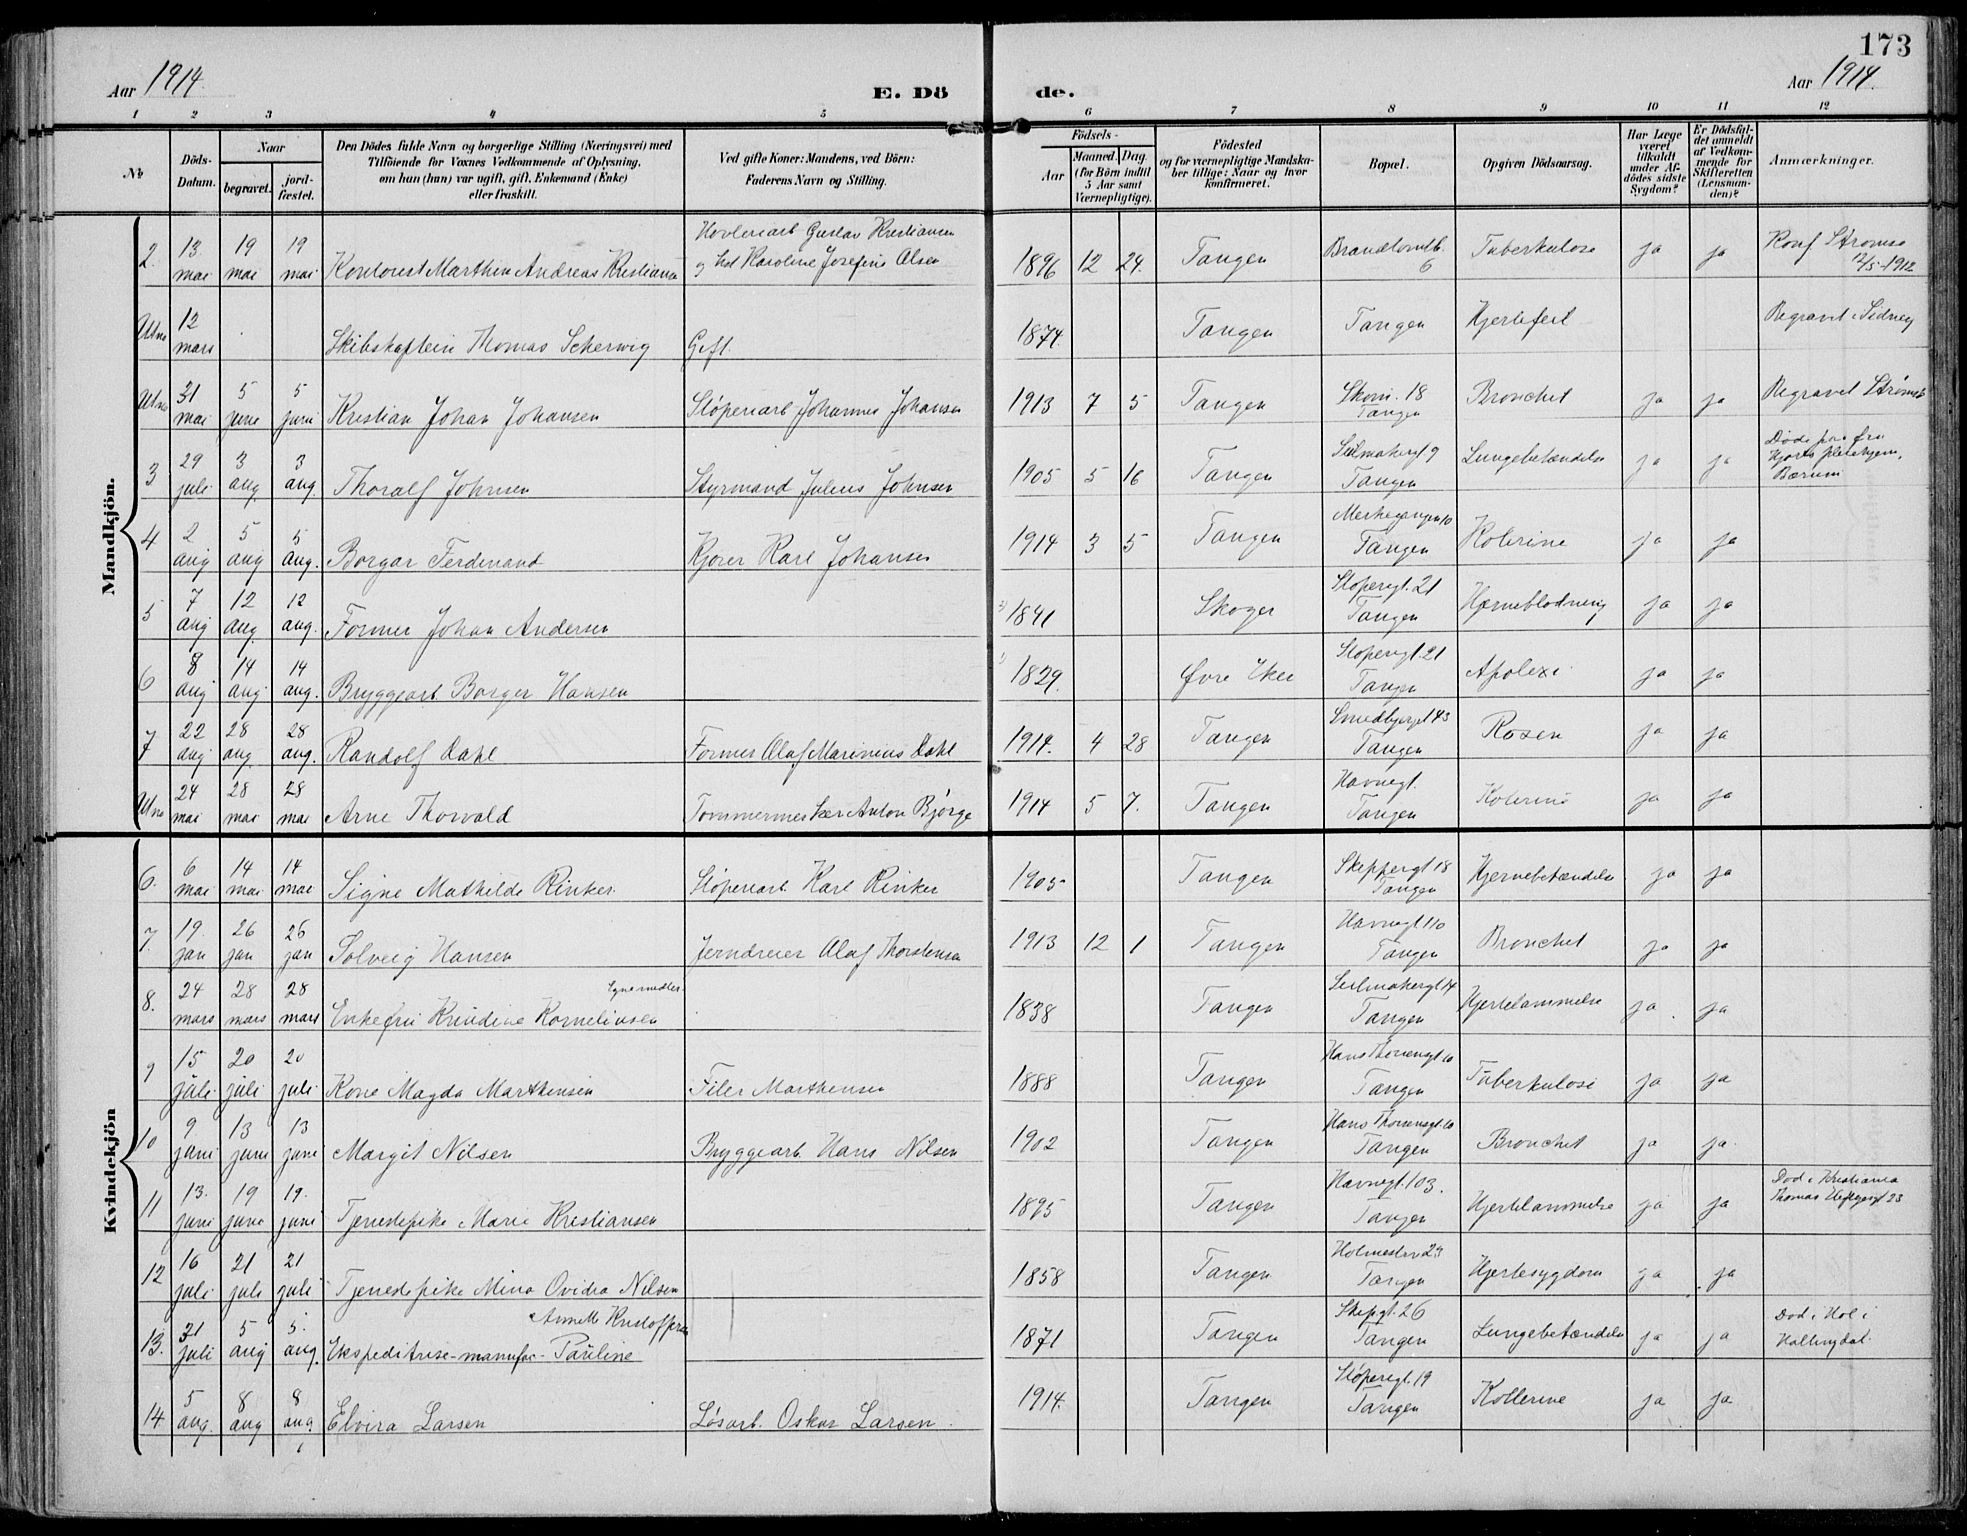 173
Aar 1914. E. Dö de. Aar 1914.
1 2 3 4 5 6 7 8 9 10 11 12
No
Döds-Datum.
Naar
begravet. jordfæstet.
Den Dödes fulde Navn og borgerlige Stilling (Næringsvei) med
Tilföiende for Voxnes Vedkommende af Oplysning,
om han (hun) var ugift, gift, Enkemand (Enke)
eller fraskilt.
Ved gifte Koner: Mandens, ved Börn:
Faderens Navn og Stilling.
Födsels-
Aar
Maaned. Dag.
(for Börn indtil
5 Aar samt
Værnepligtige).
Födested
og for værnepligtige Mandska-
ber tillige: Naar og hvor
konfirmeret.
Bopæl.
Opgiven Dödsaarsag.
Har Læge
været
tilkaldt
under Af-
dödes sidste
Sygdom?
Er Dödsfal-
det anmeldt
af Vedkom-
mende for
Skifteretten
(Lensman-
den)?
Anmærkninger.
Mandkjön.
2. 13 mai 19 mai 19 mai Kontorist Marthin Andreas Kristiansen Høvleriarb Gustav Kristiansen
og Karoline Josefine Olsen 1896 12 24. Tangen 6 Tuberkulose ja ja Konf Strømsø
12/5-1912
Utno 12 mars Skibskaptein Thomas Scherwig Gift. 1874 Tangen Tangen Hjertefeil Begravet i Sidney
Utno 31 mai 5 june 5 juni Kristian Johan Johansen Støperiarb Johannes Johansen 1913 7 5 Tangen Skom. 18
Tangen Bronchit ja ja Begravet Strømsø
3 29 juli 3 aug 3 aug. Thoralf Johnsen Styrmand Julius Johnsen 1905 5 16 Tangen Seilmakergt 9
Tangen Lungebetændelse ja ja Døde paa fru
Hjorts pleiehjem,
Bærum
4 2 aug 5 aug 5 aug. Borgar Ferdinand Kjører Karl Johansen 1914 3 5 Tangen 10
Tangen Kolerine ja ja
5 7 aug 12 aug. 12 aug. Former Johan Andersen 1841 Skoger Støperigt. 21
Tangen Hjerneblødning ja ja
6 8 aug 14 aug. 14 aug. Bryggearb. Borger Hansen 1829. Øvre Eker Støperigt. 21
Tangen Apolexi ja ja
7 22 aug 28 aug 28 aug. Randolf Dahl Former Olaf Marinius Dahl 1914. 4 28 Tangen 43
Tangen Rosen ja ja
Utno 24 mai 28 mai 28 mai Arne Thorvald Tømmermester Anton Bjørge 1914 5 7. Tangen Havnegt.
Tangen Kolerine ja ja
Kvindekjön
6. 6 mai 14 mai 14 mai Signe Mathilde Rinker. Støperiarb. Karl Rinker 1905 Tangen Skeppergt 18
Tangen Hjernebetændelse ja ja
7. 19. jan 26 jan 26 jan Solveig Hansen Jerndreier Olaf Thorstensen 1913 12 1 Tangen Havnegt 110
Tangen Bronchit ja ja
8. 24 mars 28 mars 28 mars Enkefru Korneliusen
Egne midler. 1838 Tangen Seilmakergt 14
Tangen Hjertelammelse ja ja
9 15 juli 20 juli 20 juli Kone Magda Marthinsen Filer Marthinsen 1888 Tangen Hans 10
Tangen Tuberkulose ja ja
10 9 juni 13 juni 13 juni Margit Nilsen Bryggearb. Hans Nilsen 1902 Tangen Hans 10
Tangen Bronchit ja ja
11 13. juni 19 june 19. juni Tjenestepike Marie Kristiansen 1895 Tangen Havnegt. 103.
Tangen Hjertelammelse ja ja Død i Kristiania
Thomas Heftyesgt 23
12 16 juli 21 juli 21 juli Tjenestepike Mina Ovidia Nilsen 1858 Tangen 29
Tangen Hjertesygdom ja ja
13. 31 juli 5 aug 5. aug. Ekspeditrise-manufac- Pauline
Annette 1871 Tangen Skipgt. 26
Tangen Lungebetændelse ja ja Død i Hol i
Hallingdal.
14 5 aug. 8 aug 8 aug Elvira Larsen Løsarb. Oskar Larsen 1914. Tangen Støperigt. 19
Tangen Kollerine ja ja